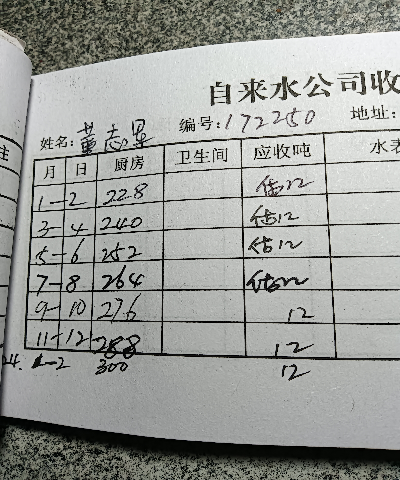 自来水公司收
姓名:董志星 编号:172250 地址:
月 日 厨房 卫生间 应收吨 水表
1-2 228 估12
3-4 240 估12
5-6 252 估12
7-8 264 估12
9-10 276 12
11-12 288 12
24. 1-2 300 12
注